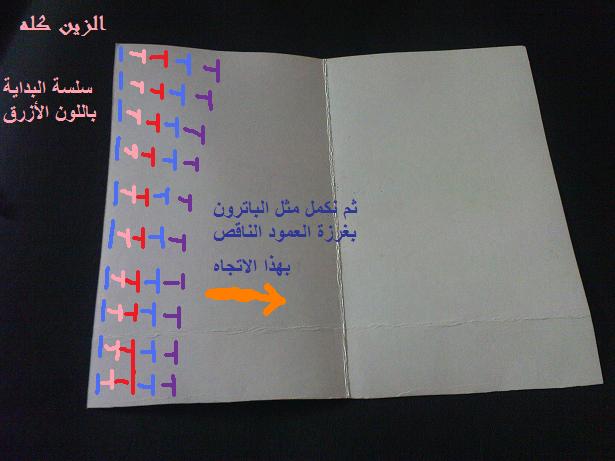 الزين كله
سلسة البداية
باللون الأزرق
ثم نكمل مثل الباترون
بغرزة العمود الناقص
بهذا الاتجاه